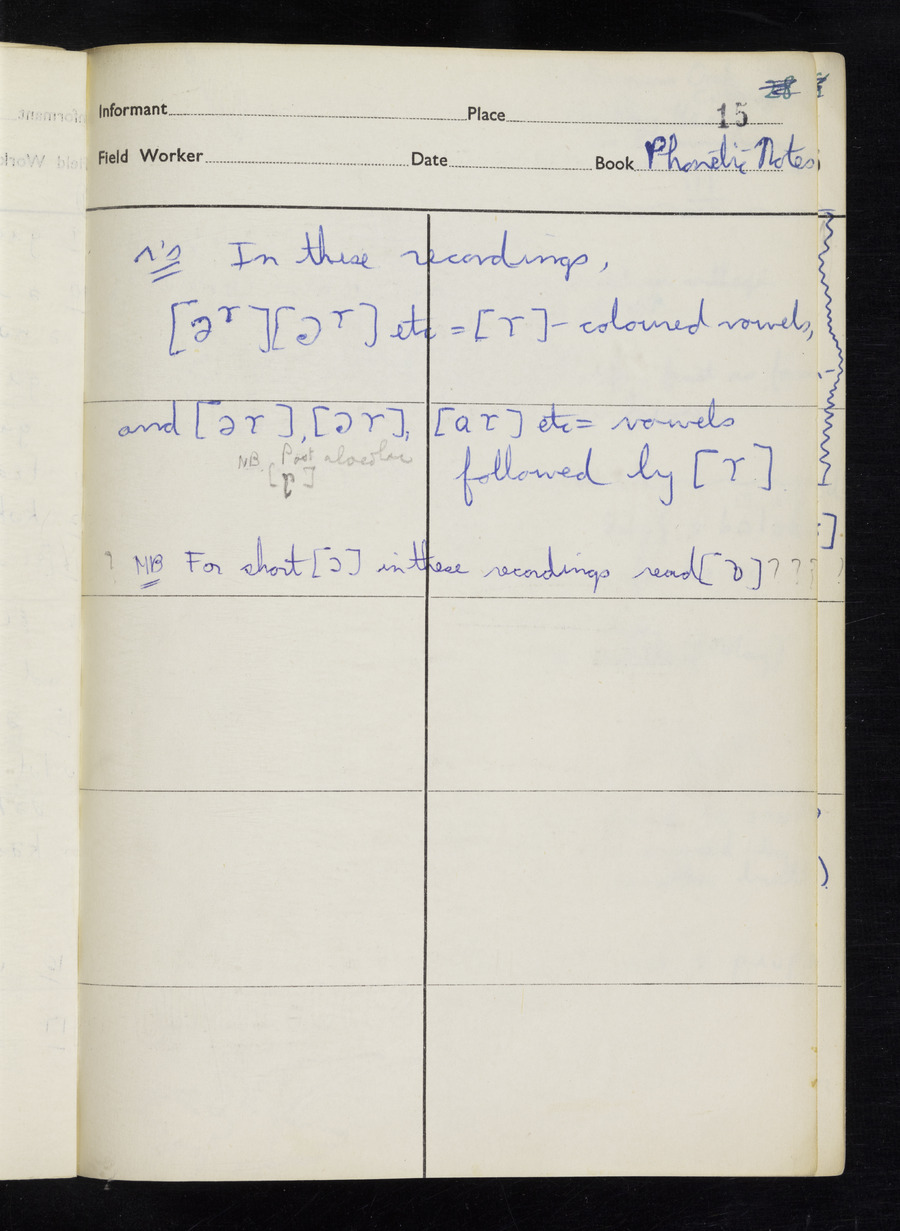 Informant Place 15
Field Worker Date Book Phonetic Notes
r's In these recordings,
[əɼ][ɔɼ] etc = [ɼ]- coloured vowels,
and [əɼ], [ɔɼ], [aɼ] etc = vowels
followed by [ɼ]
NB. Post alveolar
[ɼ]
? NB For short [ɔ] in these recordings read [ɒ] ? ? ?